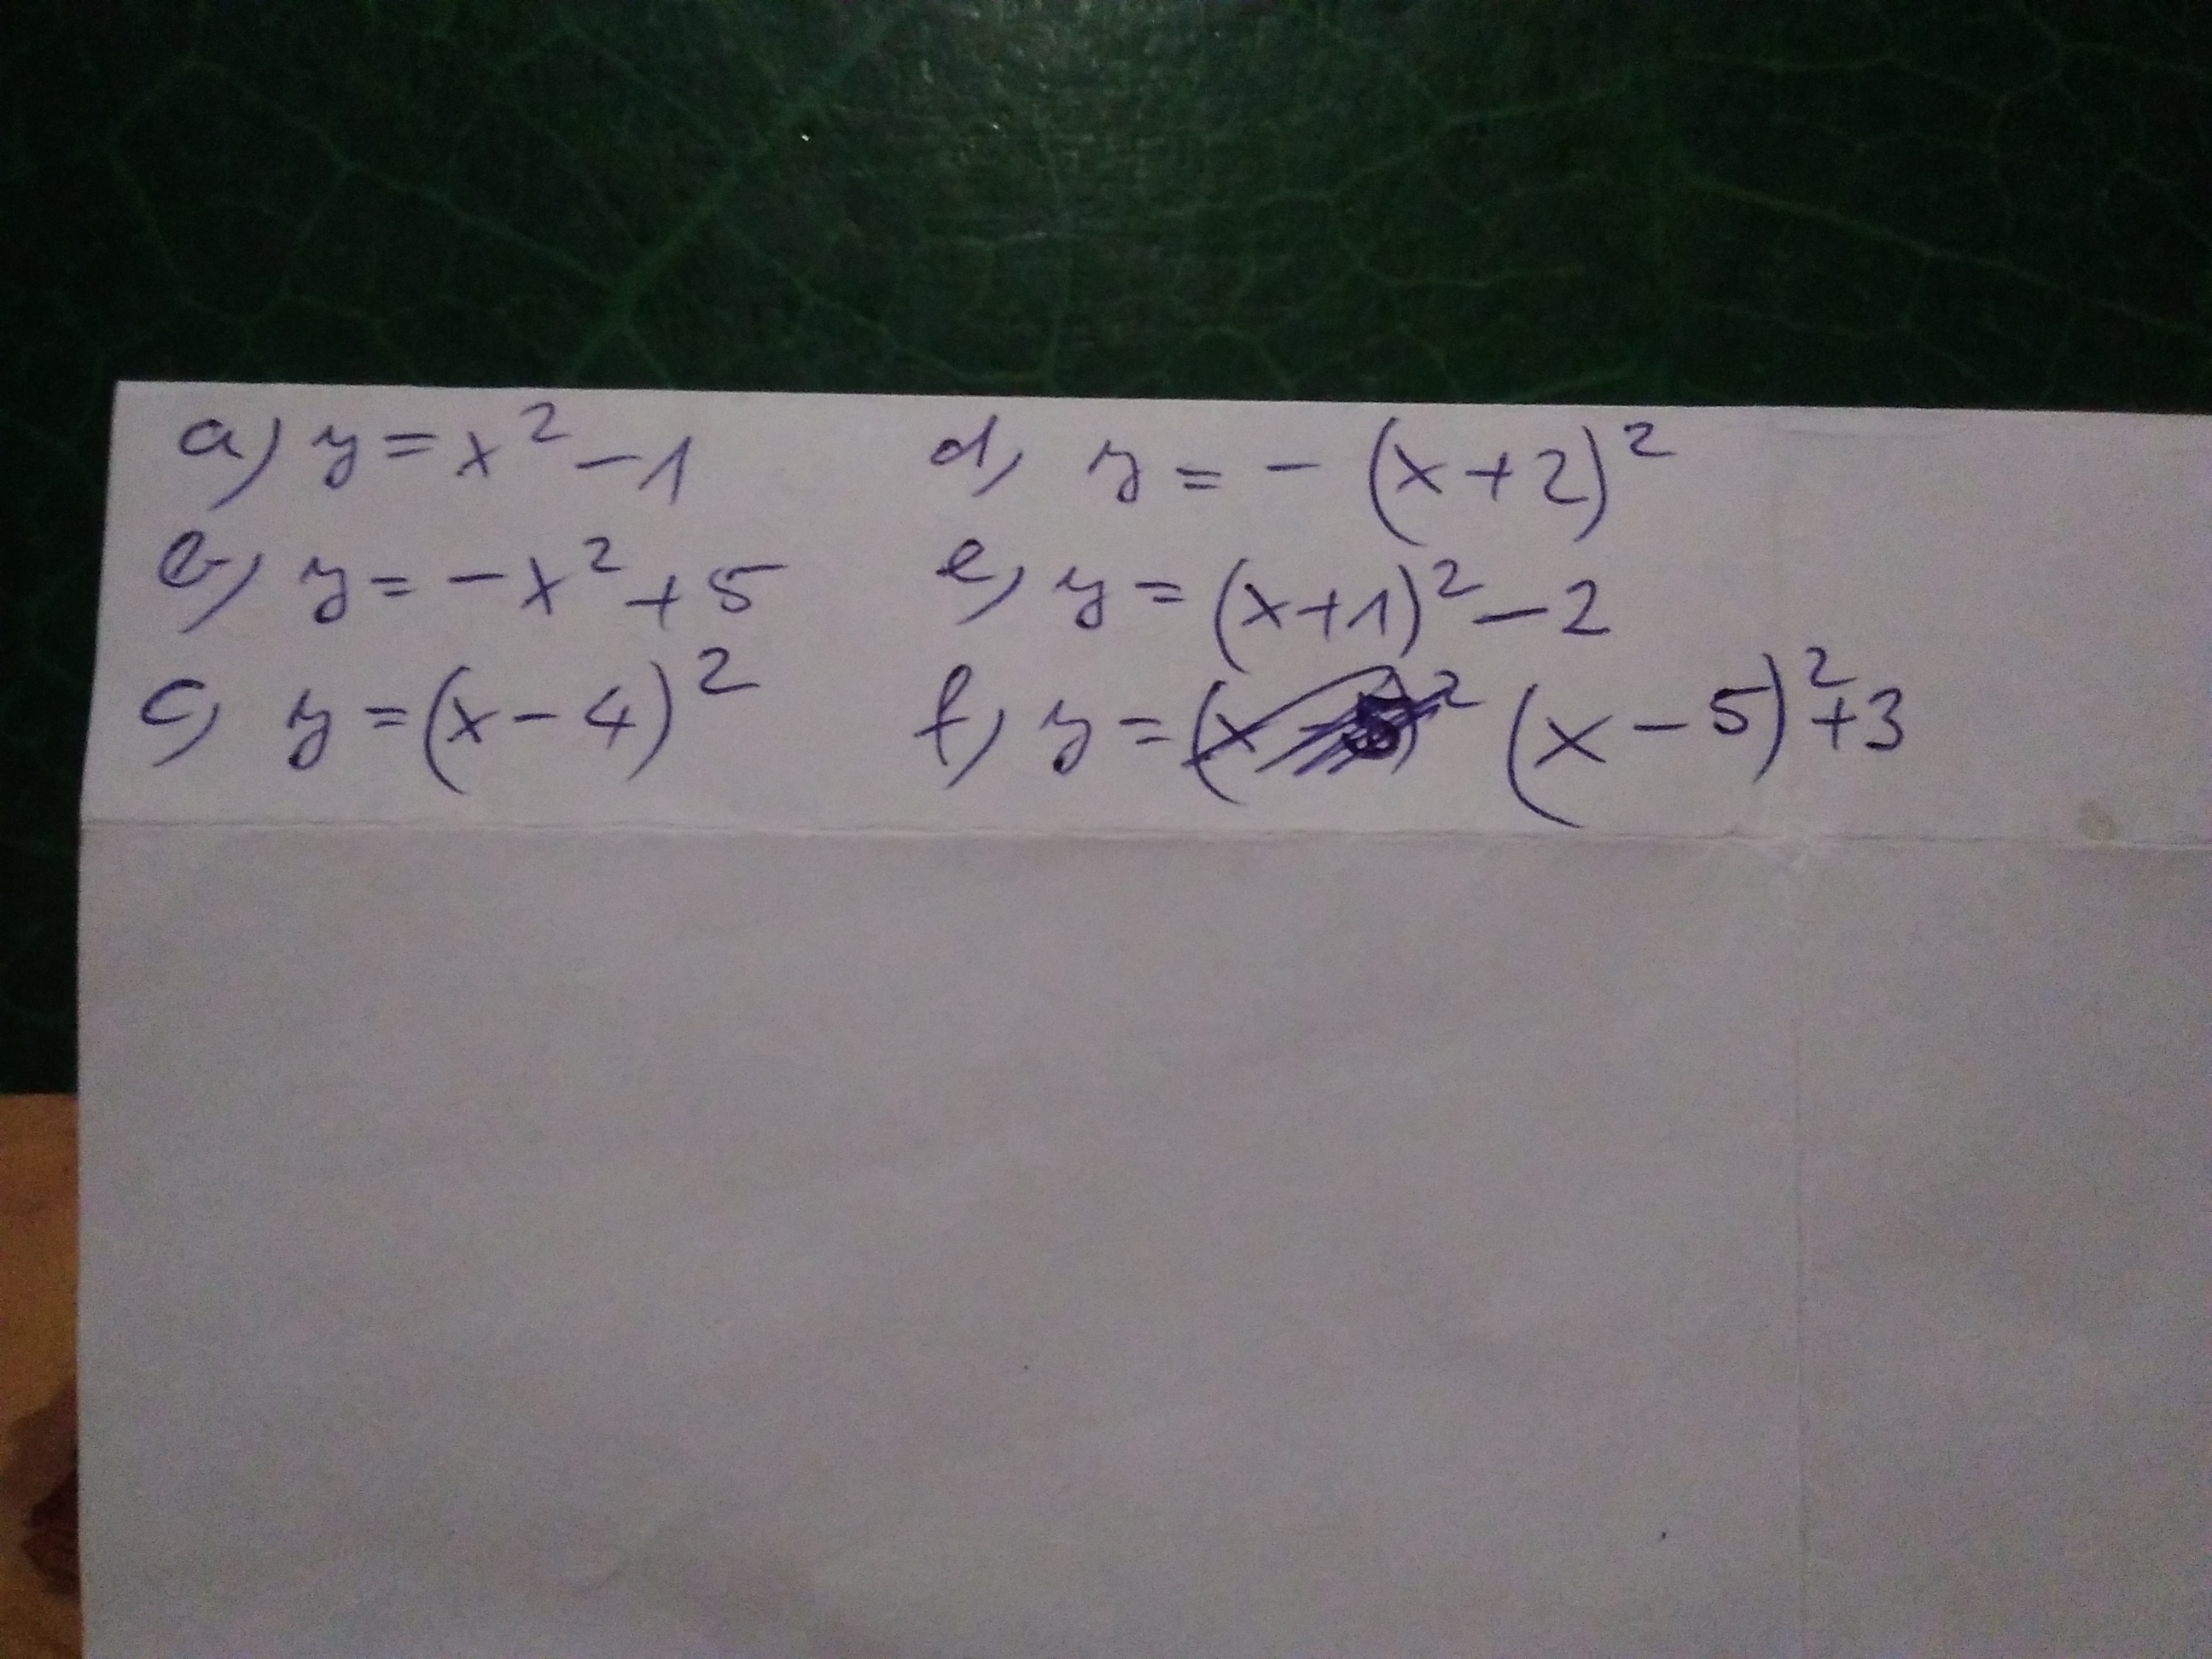 a) y = x² - 1
b) y = -x² + 5
c) y = (x - 4)²
d) y = - (x + 2)²
e) y = (x + 1)² - 2
f) y = (x - 5)² + 3